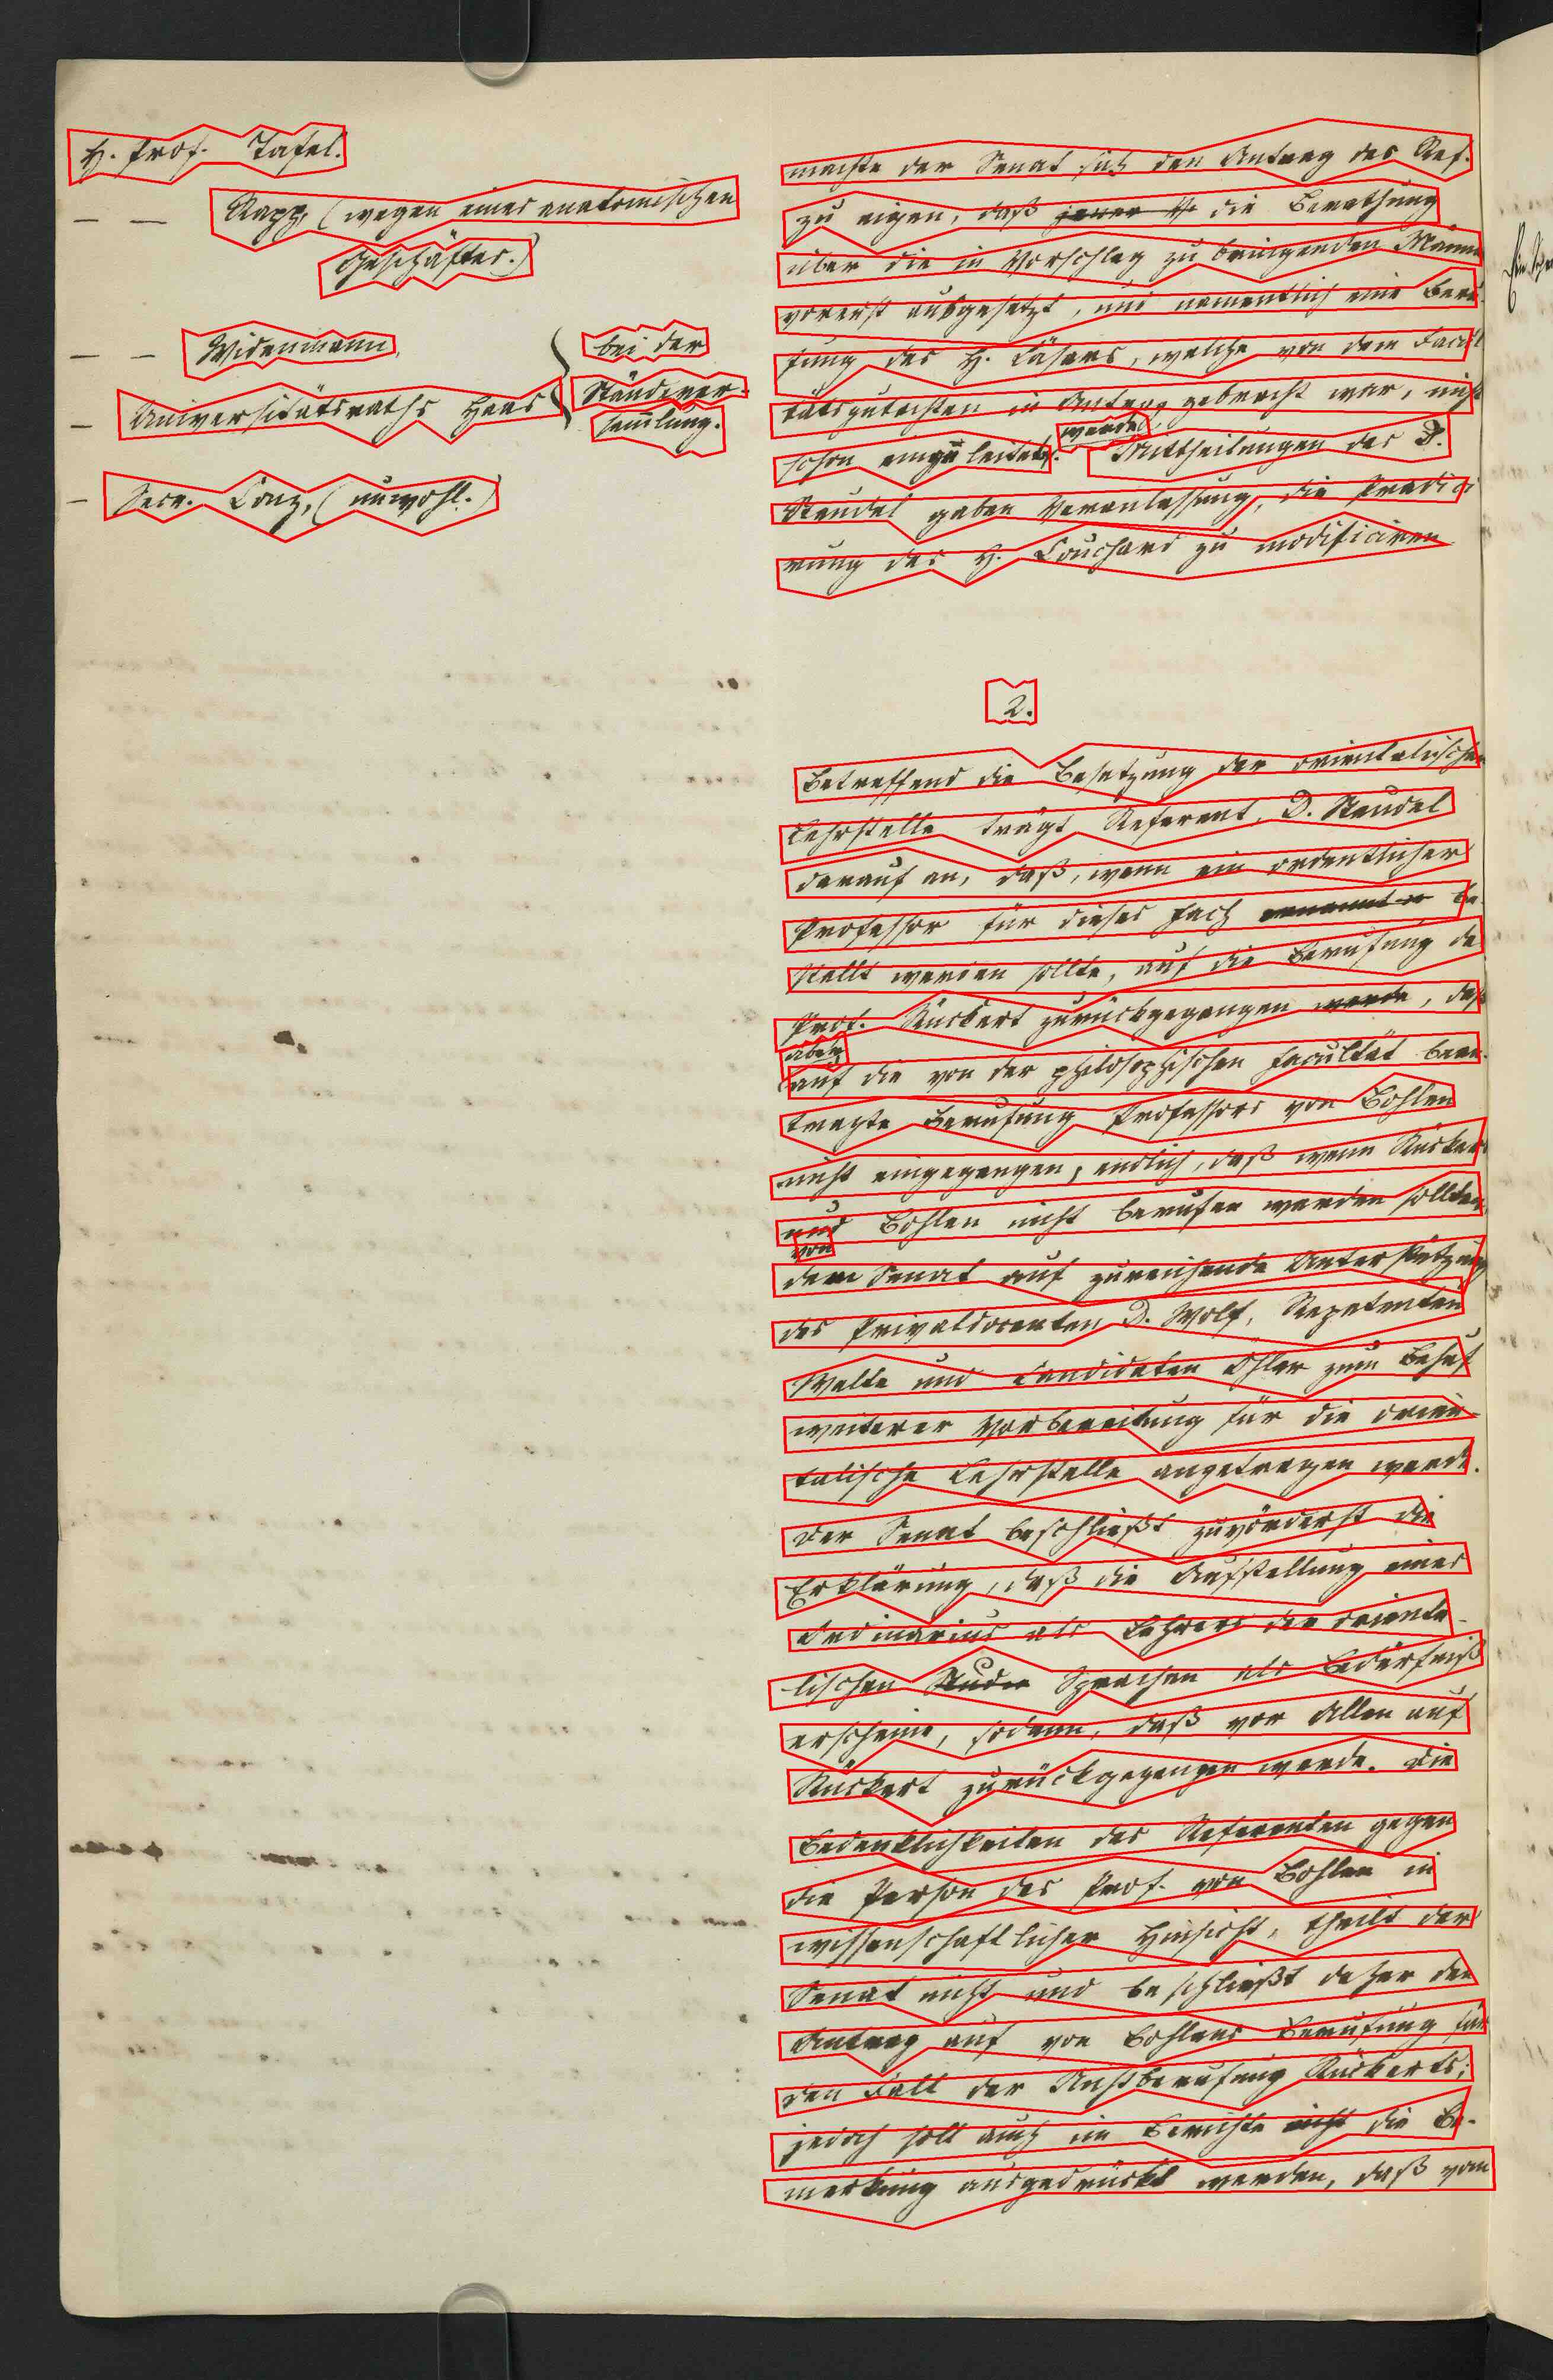 H. Prof. Tafel.
— — Rapp, (wegen eines anatomischen
Geschäftes.)
— — Widenmann,
bei der
— Universitätsraths Haas
Ständever-
sammlung.
— Secr. Conz, (unwohl.)
machte der Senat sich den Antrag des Ref.
zu eigen, daß jener die Berathung
über die in Vorschlag zu bringenden Männer
vorerst ausgesetzt, und namentlich eine Beru-
fung des H. , welche von dem Facul
tätsgutachten in Antrag gebracht war, nicht
werde,
schon eingeleitet. Mittheilungen des D.
Steudel gaben Veranlassung, die Prädici
rung des H. zu modificiren
2.
Betreffend die Besetzung der orientalischen
Lehrstelle trägt Referent, D. Steudel
darauf an, daß, wenn ein ordentlicher
Professor für dieses Fach ernannt be-
stellt werden sollte, auf die Berufung des
Prof. Rückert zurückgegangen werde, daß
aber
auf die von der philosophischen Facultät bean-
tragte Berufung Professors von Bohlen
nicht eingegangen, endlich, daß wenn Rückert
und Bohlen nicht berufen werden sollten,
von
dem Senat auf zureichende Unterstützung
des Privatdocenten D. Wolf, Repetenten
Welte und Candidaten Öhler zum Behuf
weiterer Vorbereitung für die orien-
talische Lehrstelle angetragen werde.
Der Senat beschließt zuvörderst die
Erklärung, daß die Aufstellung eines
Ordinarius als Lehrers der orienta-
lischen Studie Sprachen als Bedürfniß
erscheine, sodann, daß vor Allen auf
Rückert zurückgegangen werde. Die
Bedenklichkeiten des Referenten gegen
die Person des Prof. von Bohlen in
wissenschaftlicher Hinsicht, theilt der
Senat nicht und beschließt daher den
Antrag auf von Bohlens Berufung für
den Fall der Nichtberufung Rückerts;
jedoch soll auch im Berichte nicht die Be-
merkung ausgedrückt werden, daß vom